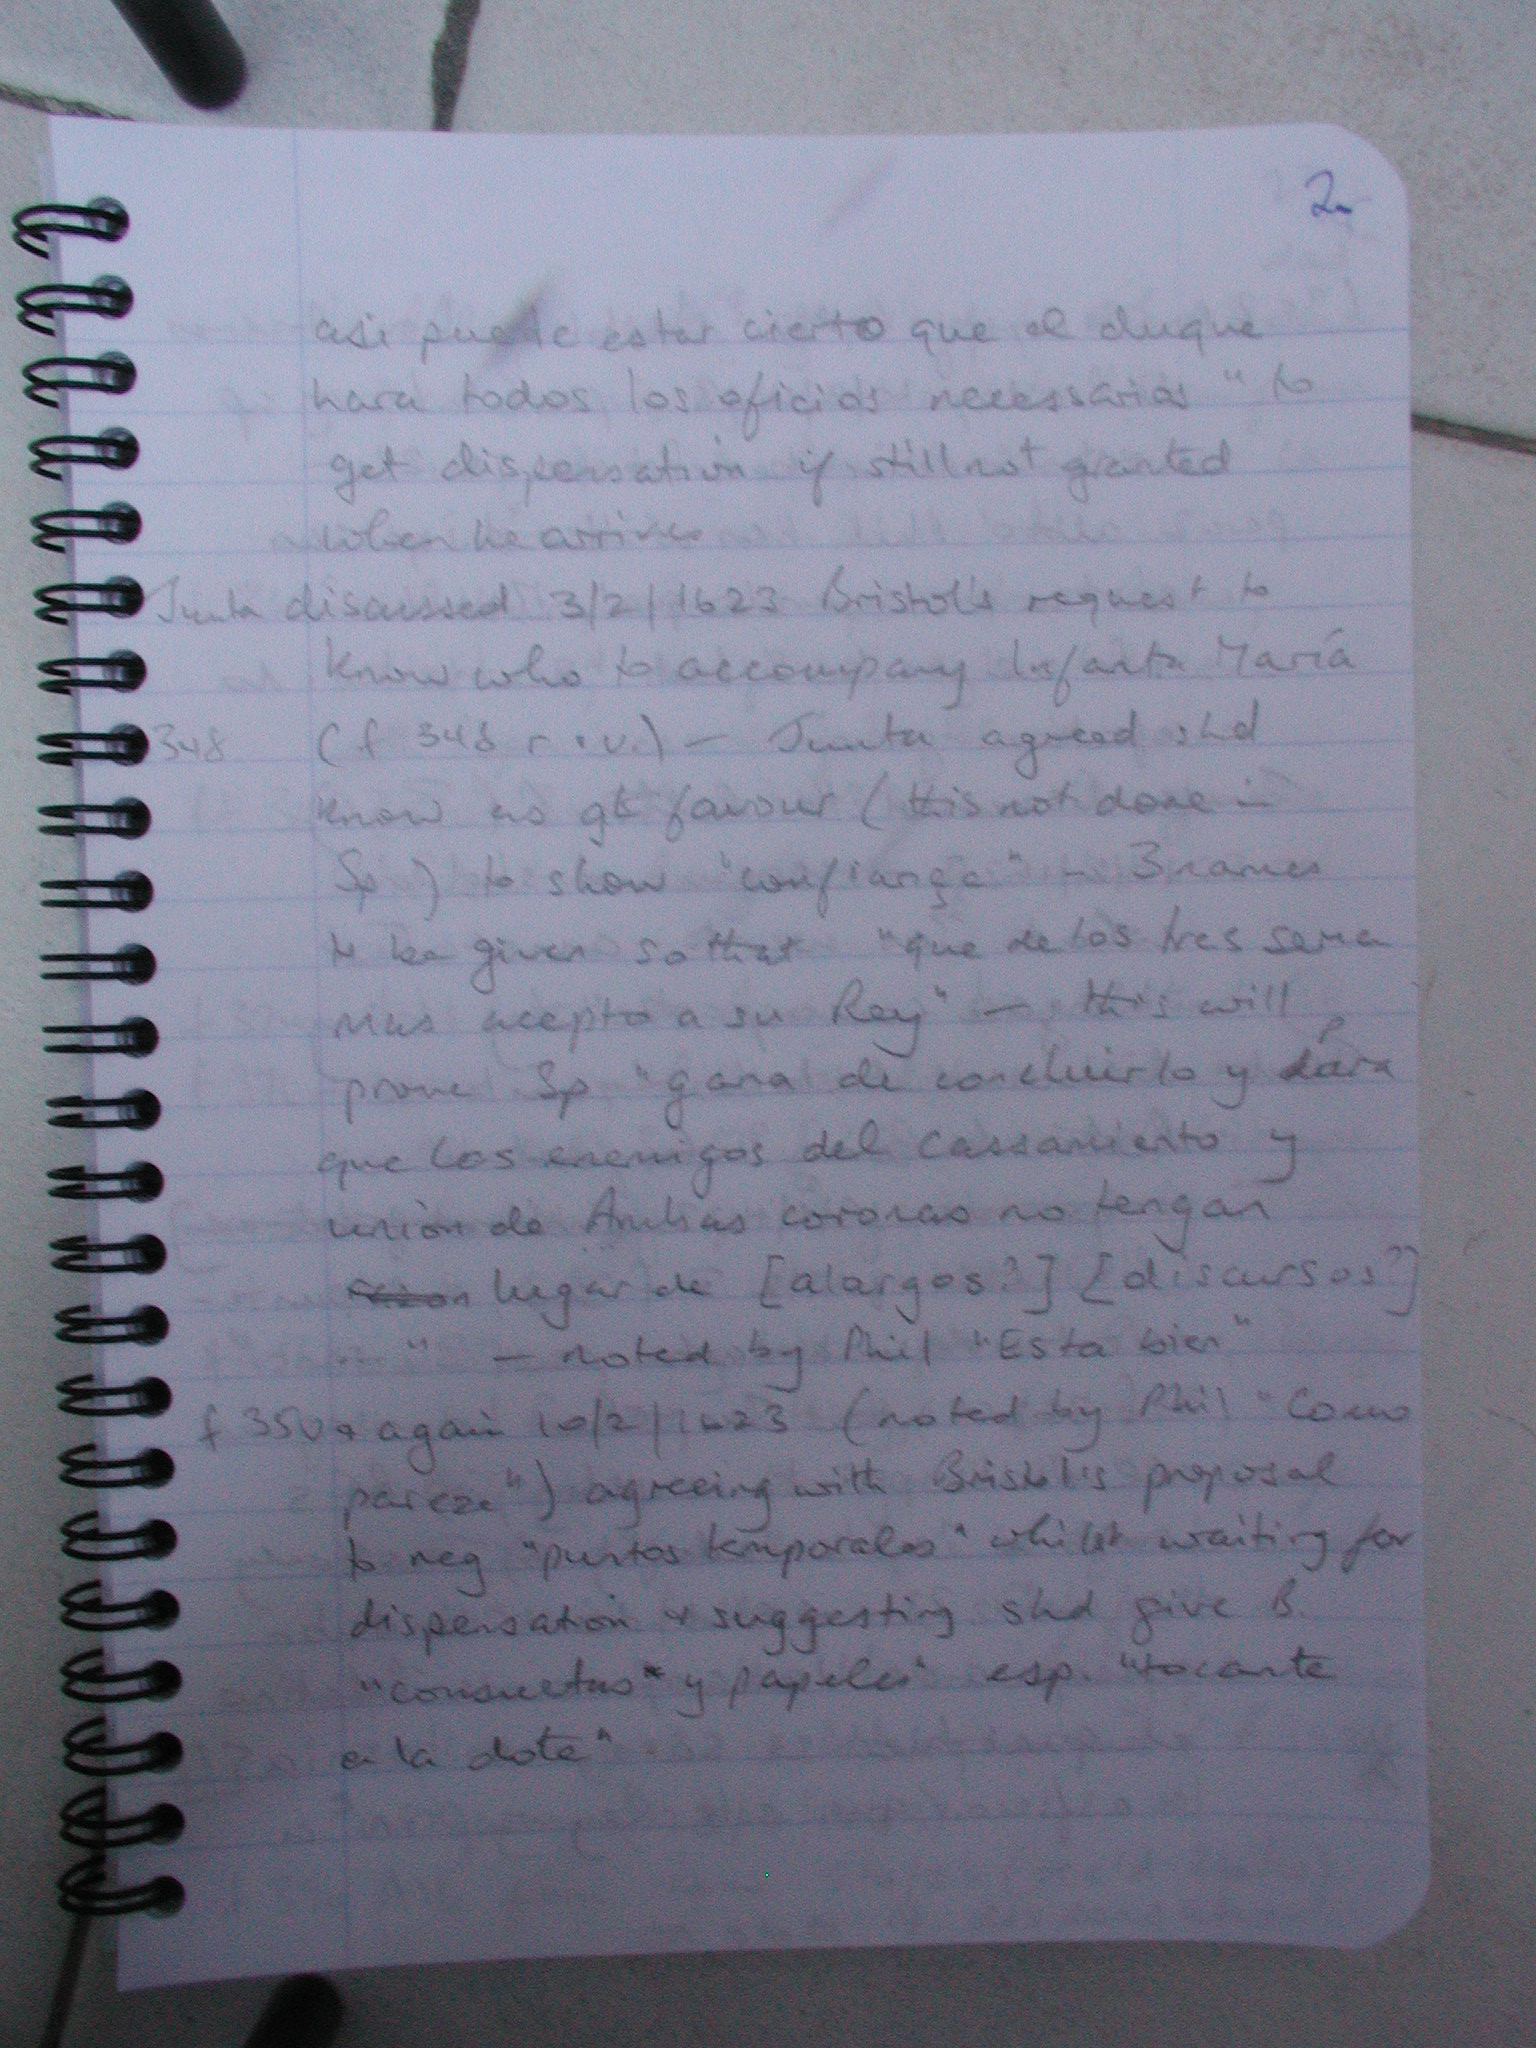 2
asi puede estar cierto que el duque
hara todos los oficios necessarios" to
get dispensation if still not granted
when he arrives
Junta discussed 3/2/1623 Bristol's request to
know who to accompany Infanta María
348 (f 348 r + v.) — Junta agreed shd
know as gt favour (this not done in
Sp) to show "confiança" – 3 names
to be given so that "que de los tres seria
mas acepto a su Rey" — this will
prove Sp "gana de concluirlo y para
que los enemigos del cassamiento y
unión de Ambas coronas no tengan
lugar de [alargos?] [discursos?]
" — noted by Phil "Esta bien"
f 350 & again 10/2/1623 (noted by Phil "Como
pareze") agreeing with Bristol's proposal
to neg "puntos temporales" whilst waiting for
dispensation & suggesting shd give B.
"consuetas* y papeles" esp. "tocante
a la dote"